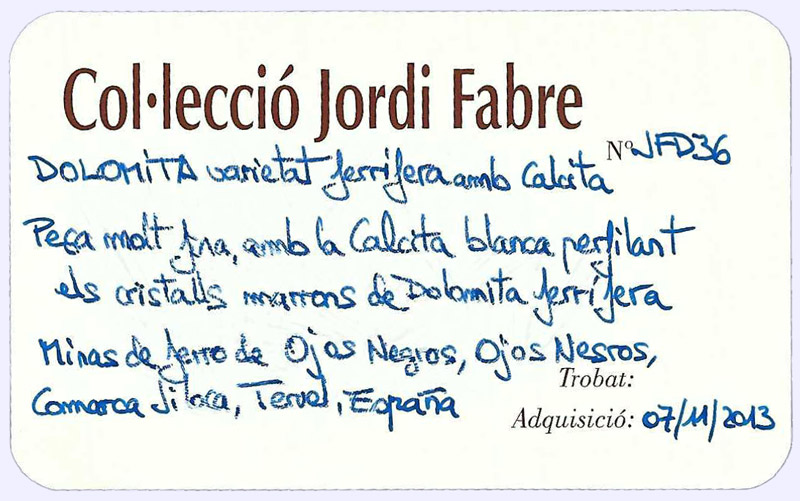 Col·lecció Jordi Fabre
Nº JFD36
DOLOMITA varietat ferrífera amb Calcita
Peça molt fina, amb la Calcita blanca perfilant
els cristalls marrons de Dolomita ferrífera
Minas de ferro de Ojos Negros, Ojos Negros,
Trobat:
Comarca Jiloca, Teruel, España
Adquisició: 07/11/2013